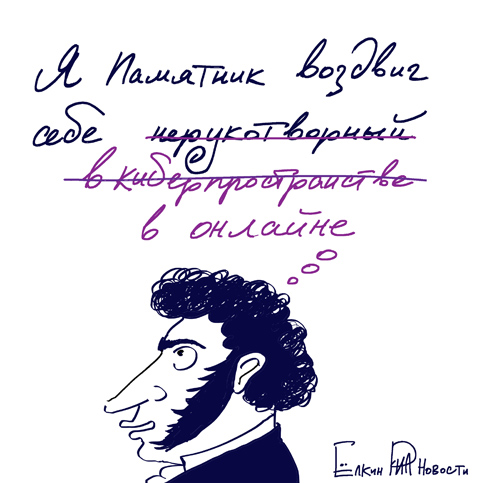 Я памятник воздвиг
себе нерукотворный
в киберпространстве
в онлайне
Ёлкин РИА Новости